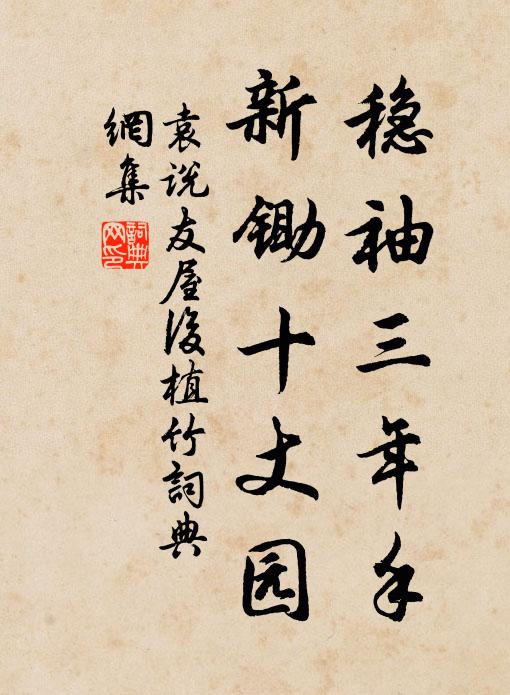 稳袖三年手
新锄十丈园
袁说友屋後植竹詞典
網集
詞典网印